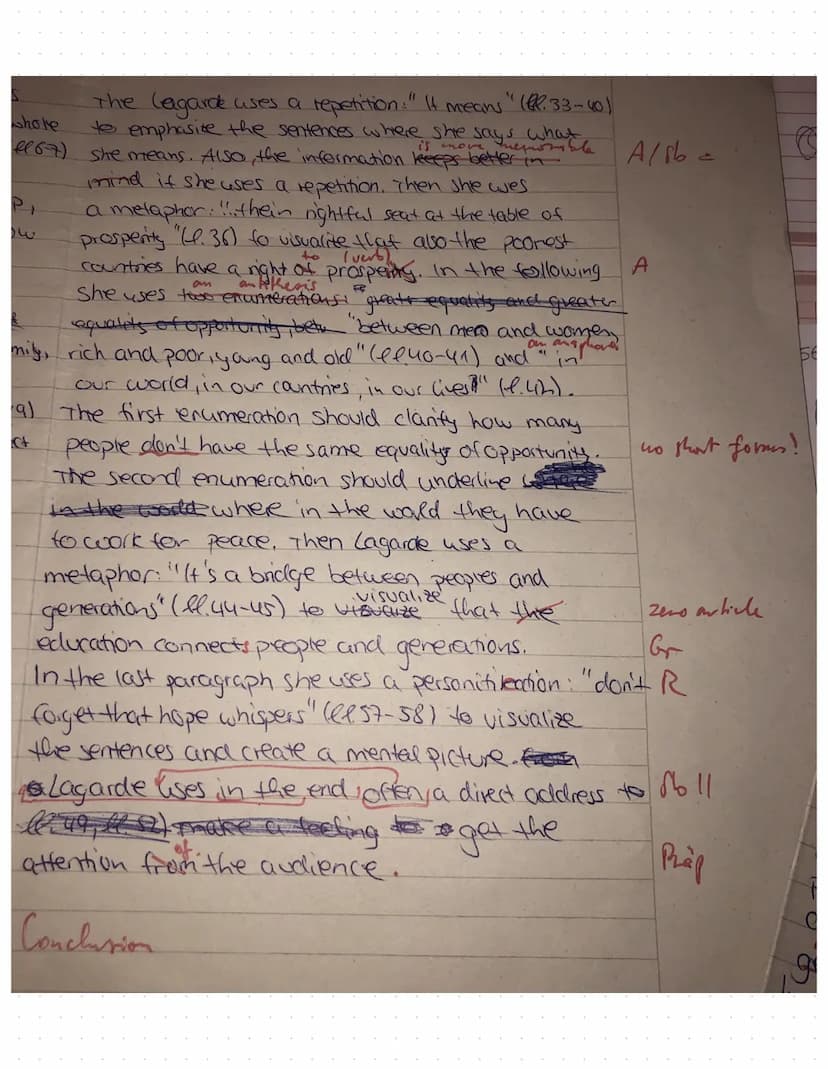 The Lagarde uses a repetition: "It means" (ll. 33-40)
to emphasize the sentences where she says what
ll 67) she means. Also, the information keeps better in is more memorable A/Sb =
mind if she uses a repetition. Then she uses
a metaphor: "...their rightful seat at the table of
prosperity" (l. 36) to visualize that also the poorest
countries have a right of to prospering (verb). In the following A
she uses two enumerations: an antithesis " greate equality and greater
equality of opportunity, betw "between men and women,
rich and poor, young and old" (ll. 40-41) and an anaphora "in
our world, in our countries, in our lives" (l. 42).
The first enumeration should clarify how many
people don't have the same equality of opportunity. no short forms!
The second enumeration should underline
in the world where in the world they have
to work for peace. Then Lagarde uses a
metaphor: "It's a bridge between peoples and
generations" (ll. 44-45) to visualize that the zero article
education connects people and generations. Gr
In the last paragraph she uses a personification: "don't R
forget that hope whispers" (ll 57-58) to visualize
the sentences and create a mental picture.
Lagarde uses in the end, often, a direct address to Sb II
ll. 49, ll 52) make a feeling to get the
attention from of the audience. Präp
Conclusion